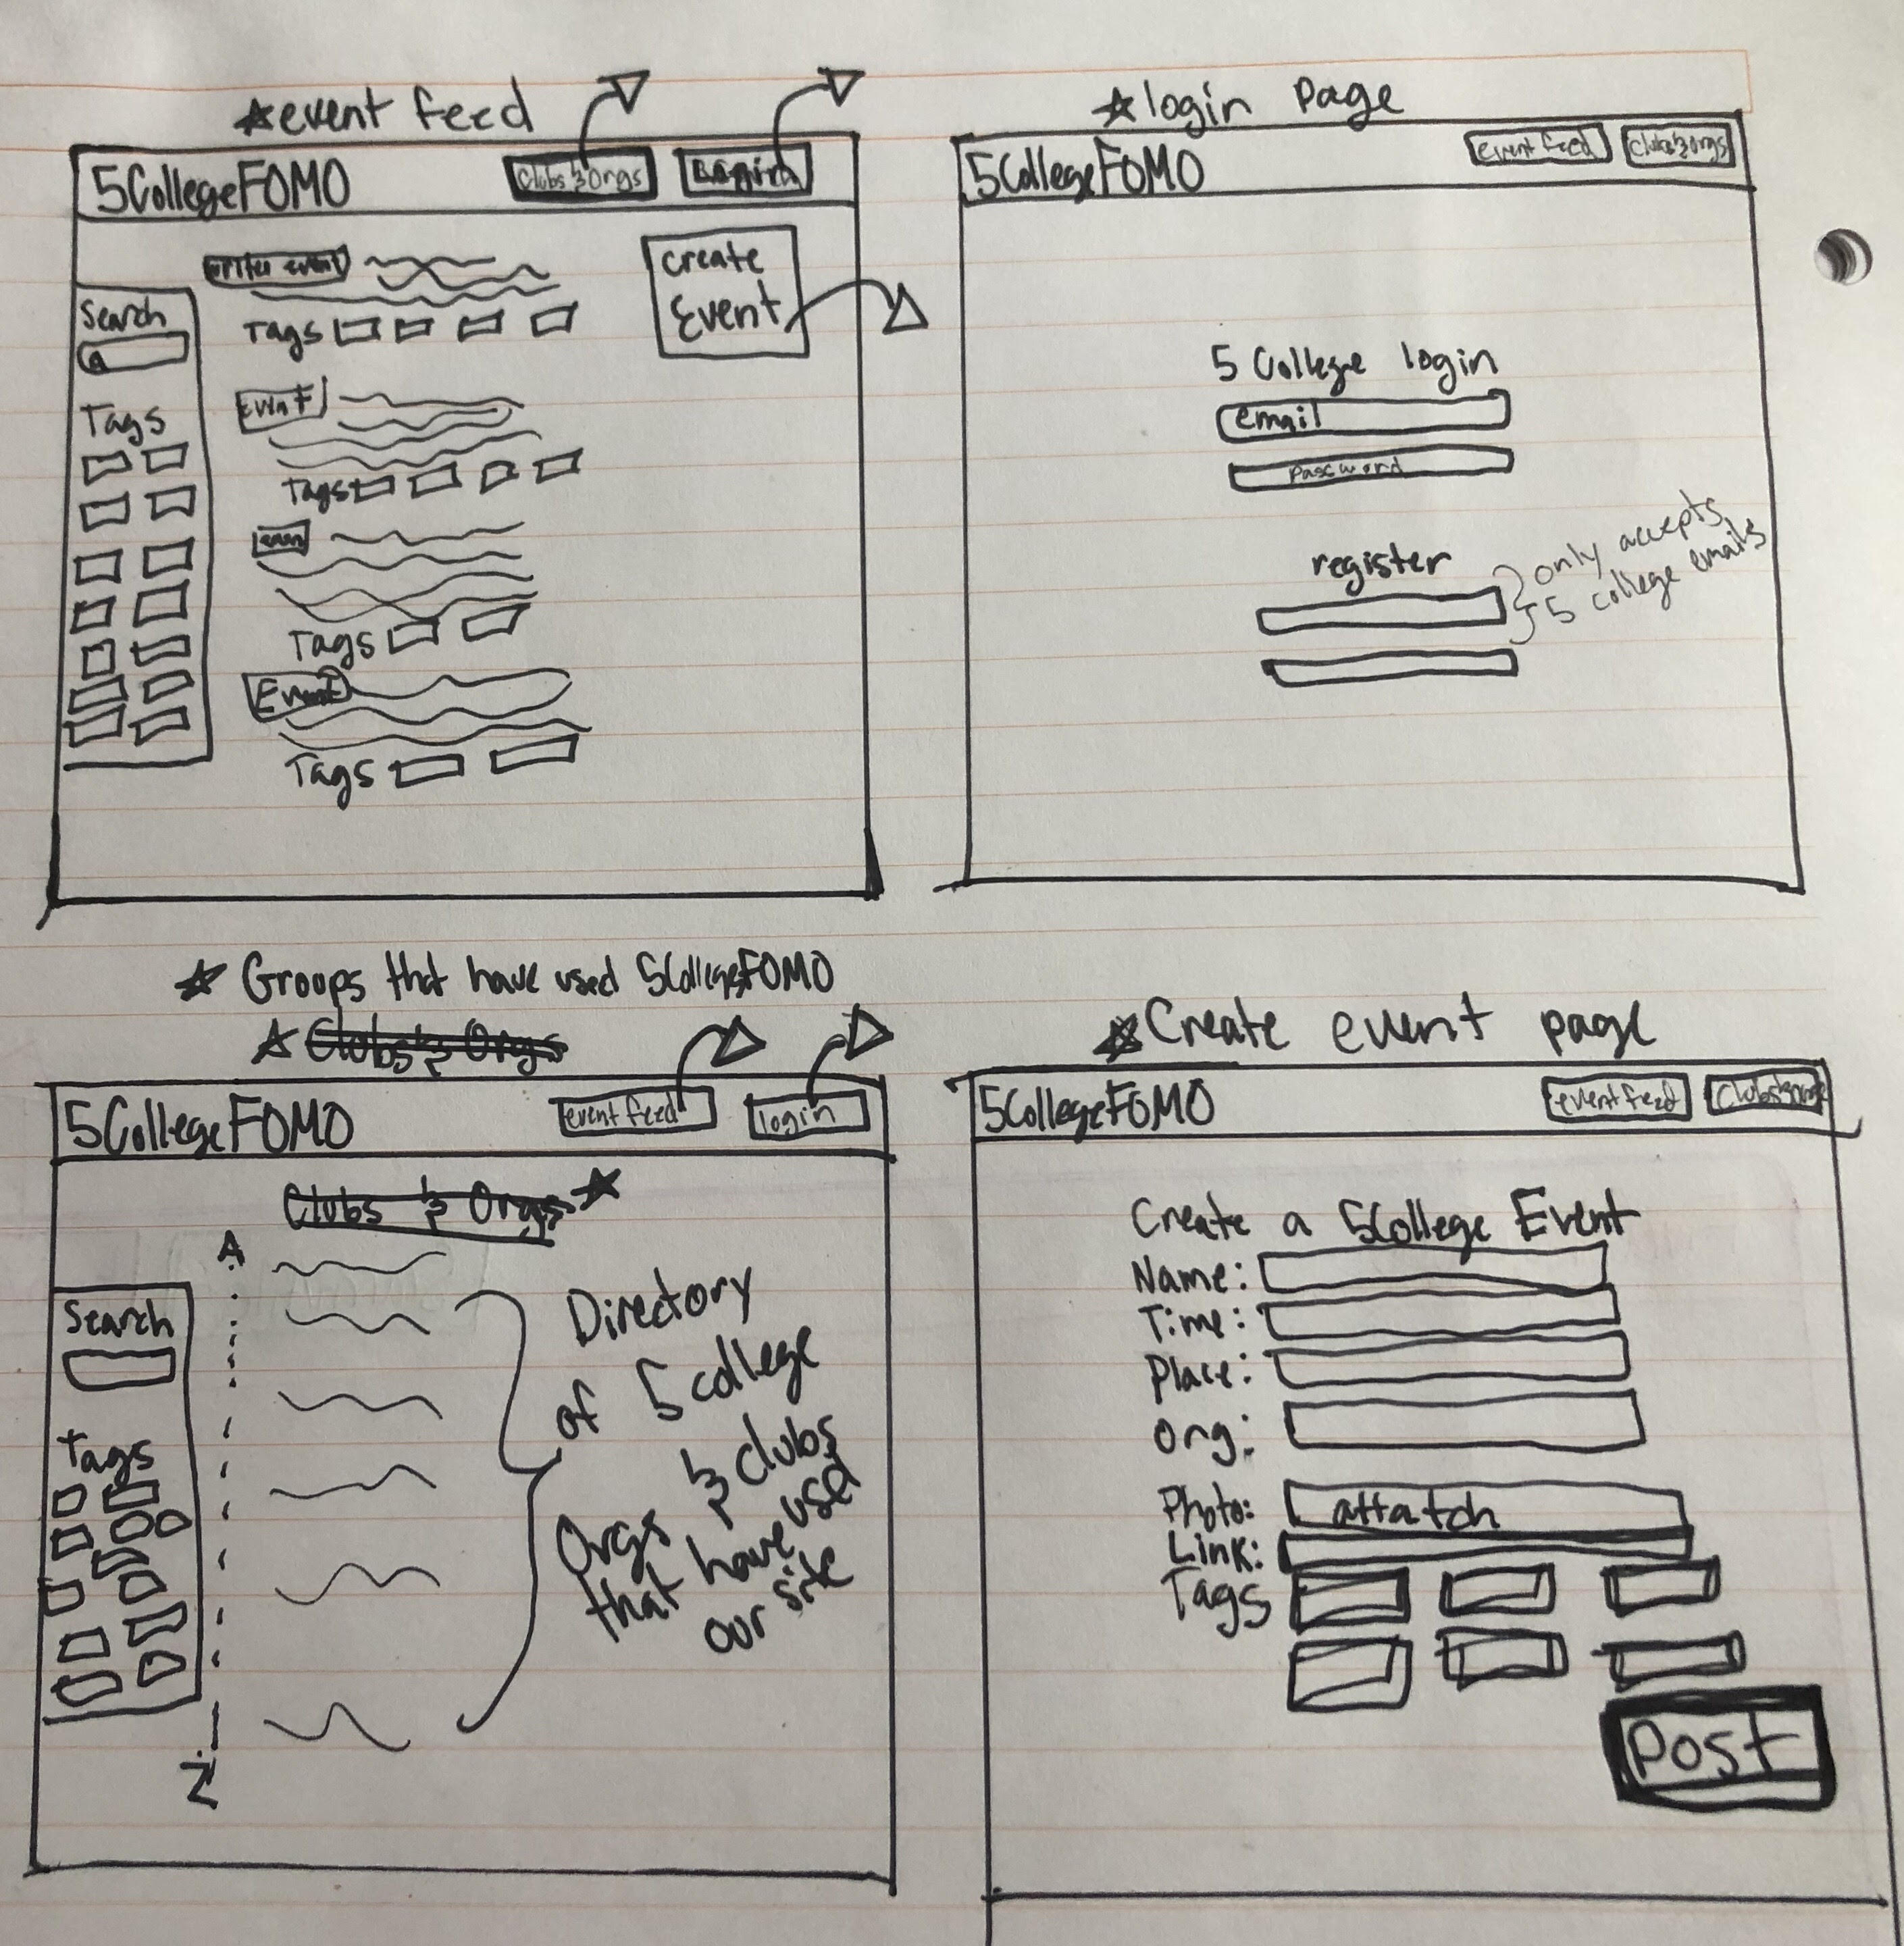 event feed
5CollegeFOMO
Clubs & Orgs
Login
create
Event
Search
Tags
Event
Tags
Event
Tags
Tags
Event
Tags
login page
5CollegeFOMO
event feed
Clubs & Orgs
5 College login
email
password
register
only accepts
5 college emails
Groups that have used 5CollegeFOMO
Clubs & Orgs
5CollegeFOMO
event feed
login
Clubs & Orgs
A
Z
Search
Tags
Directory
of 5 college
Orgs & clubs
that have used
our site
Create event page
5CollegeFOMO
event feed
Clubs & Orgs
Create a 5College Event
Name:
Time:
Place:
Org:
Photo: attatch
Link:
Tags
Post